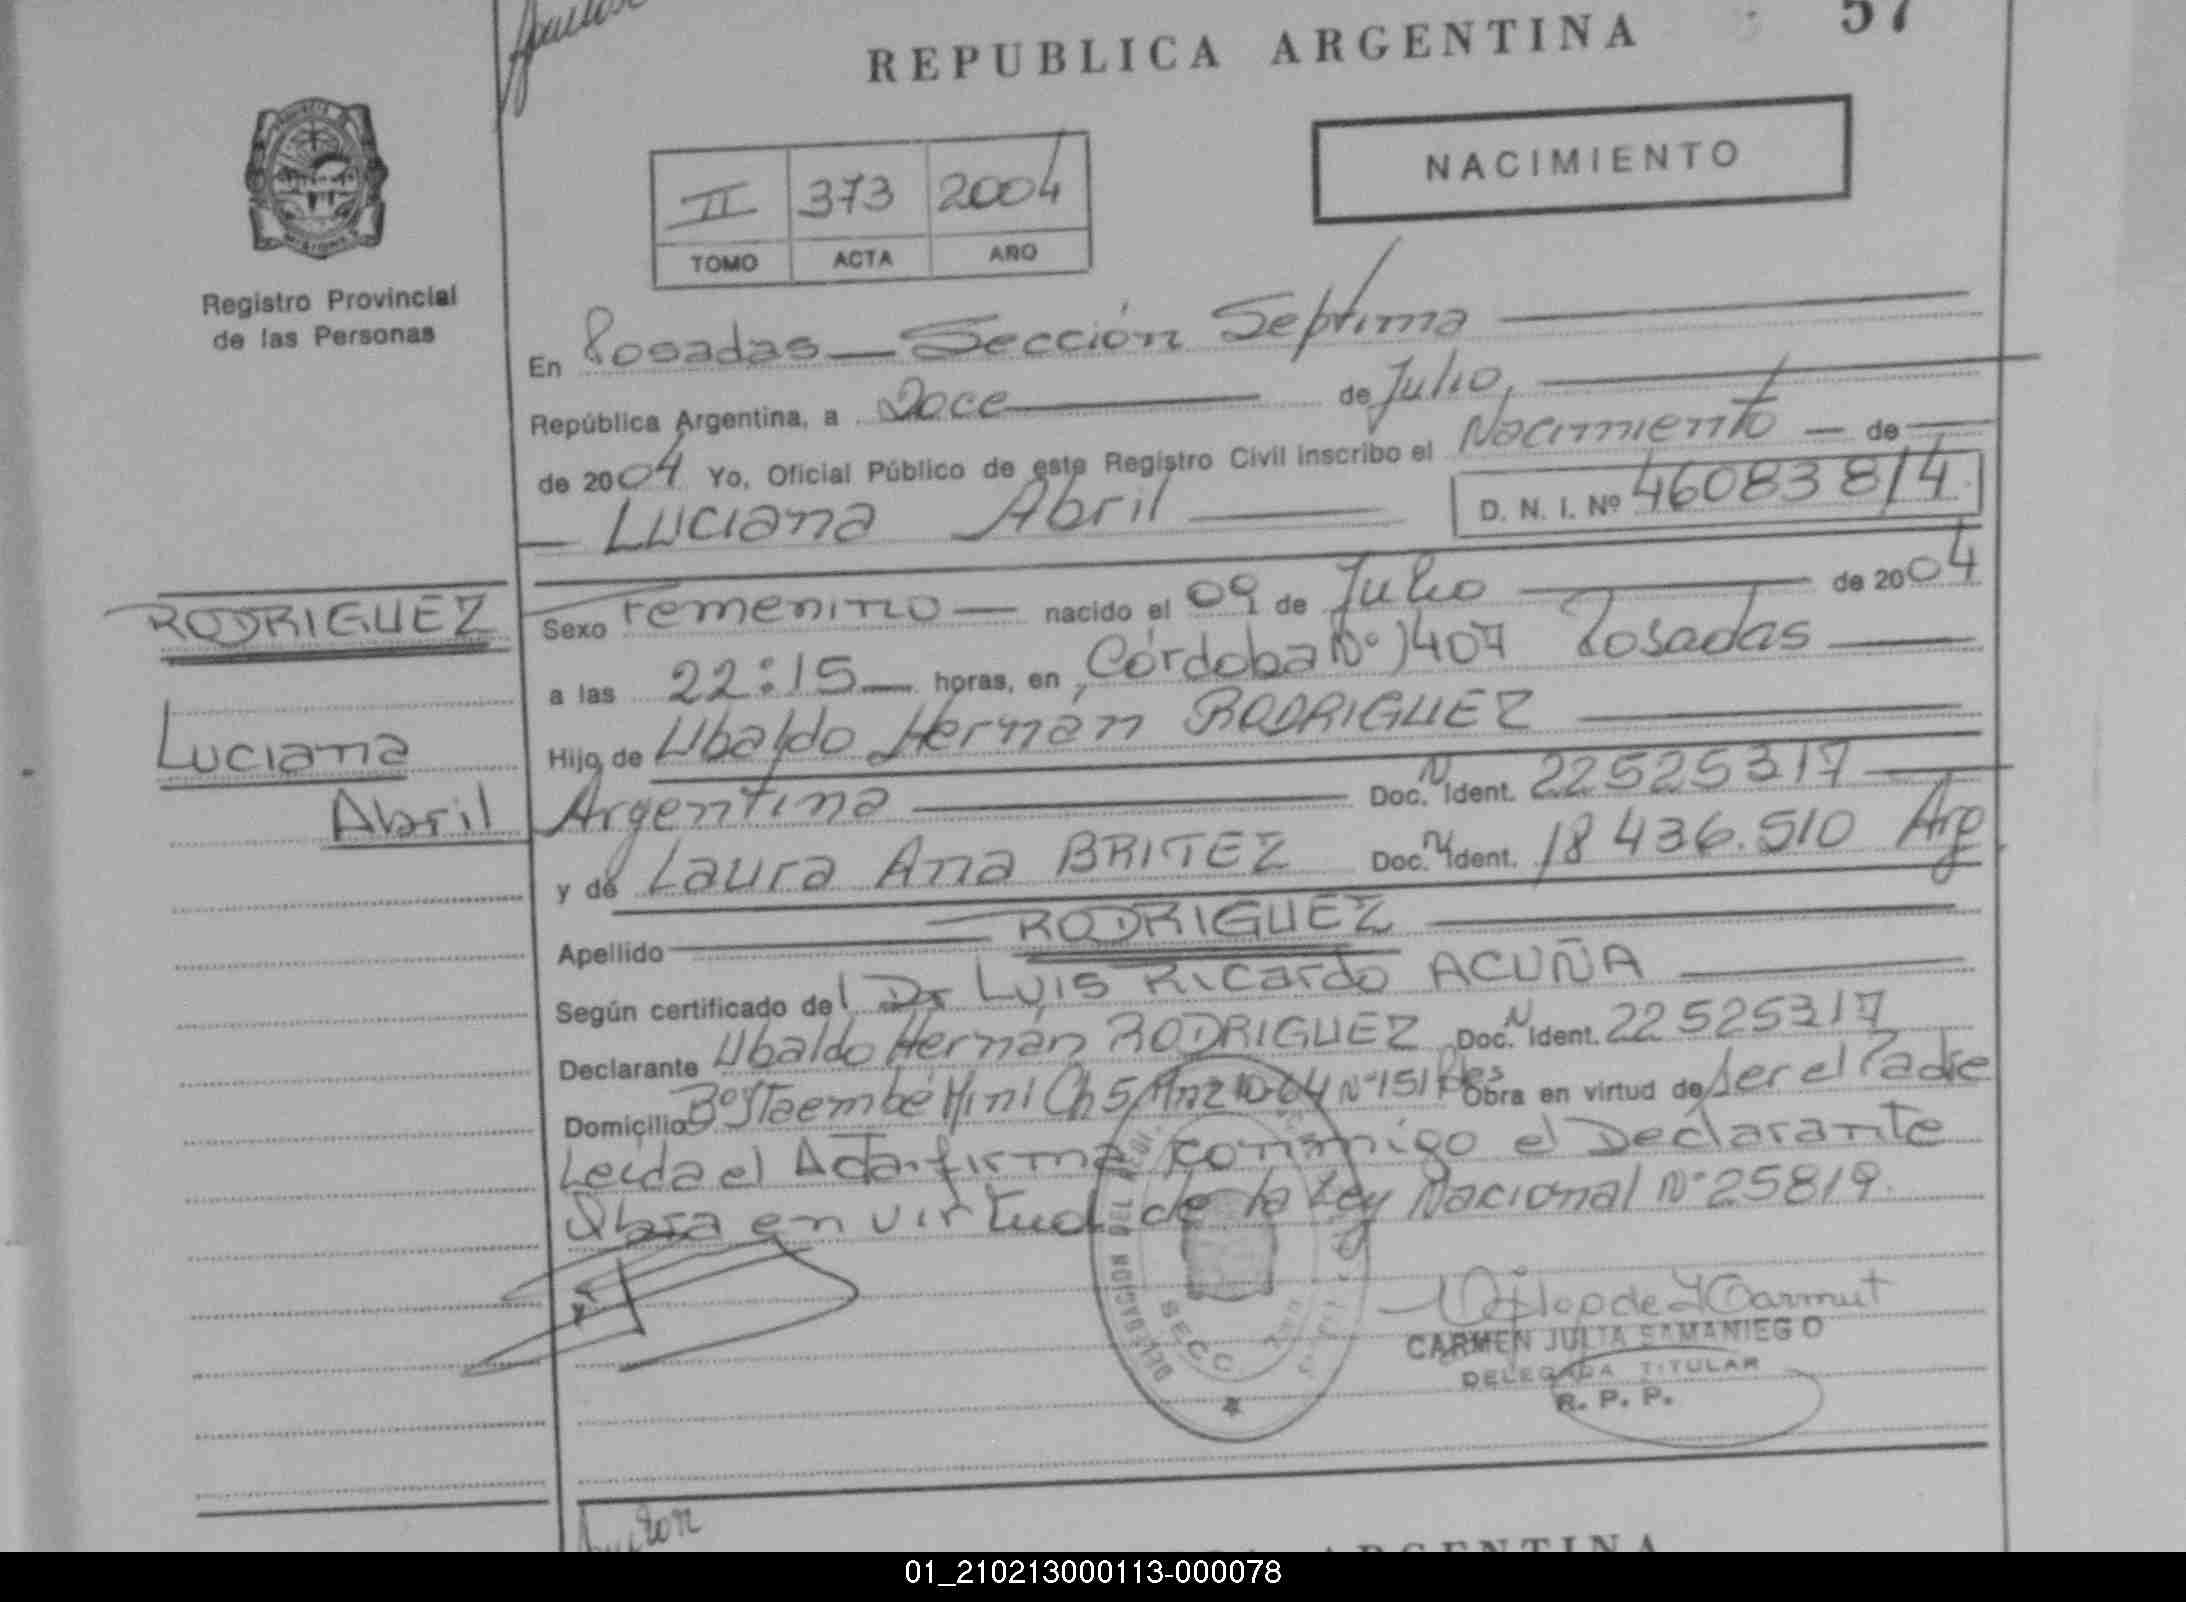 REPUBLICA ARGENTINA 57
NACIMIENTO
II 373 2004
TOMO ACTA AÑO
Registro Provincial
de las Personas
En Posadas - Sección Septima
República Argentina, a Doce de Julio,
de 2004 Yo, Oficial Público de este Registro Civil inscribo el Nacimiento - de
Luciana Abril D. N. I. Nº 46083814
RODRIGUEZ
Luciana
Abril
Sexo Femenino nacido el 09 de Julio de 2004
a las 22:15 horas, en Córdoba Nº 1407 Posadas
Hijo de Ubaldo Hernán RODRIGUEZ
Argentina Doc. N Ident. 22525317
y de Laura Ana BRITEZ Doc. N Ident. 18 436.510 Arg
Apellido RODRIGUEZ
Según certificado del Dr Luis Ricardo ACUÑA
Declarante Ubaldo Hernán RODRIGUEZ Doc. N Ident. 22525317
Domicilio Bº Itaembé Mini Ch 5 Nº 151 Pdas Obra en virtud de ser el Padre
Leída el Acta firma conmigo el Declarante
Obra en virtud de la Ley Nacional Nº 25819.
CARMEN JULIA SAMANIEGO
DELEGADA TITULAR
R. P. P.
SECC
ARGENTINA
01_210213000113-000078